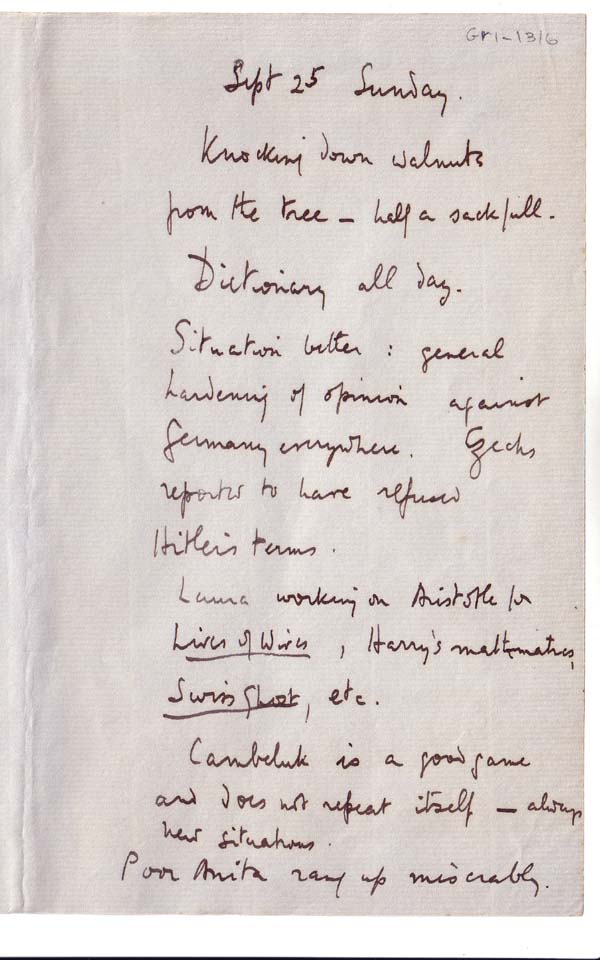 GRI-1316
Sept 25 Sunday.
Knocking down walnuts
from the tree – half a sackfull.
Dictionary all day.
Situation better : general
hardening of opinion against
Germany everywhere. Czechs
reported to have refused
Hitler's terms.
Laura working on Aristotle for
Lives of Wives, Harry's mathematics,
Swiss Ghost, etc.
Cambeluk is a good game
and does not repeat itself – always
new situations.
Poor Anita rang up miserably.